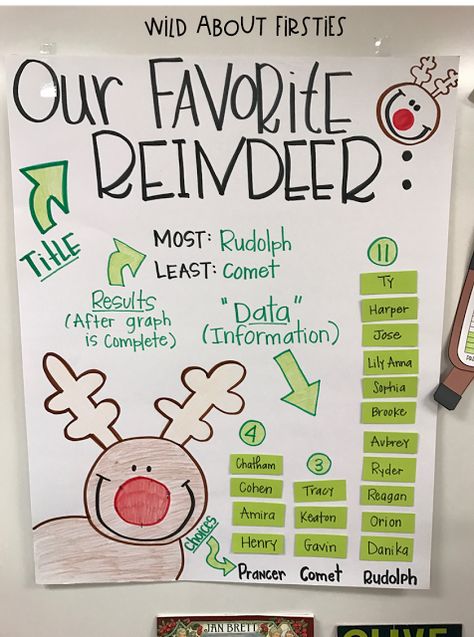 WILD ABOUT FIRSTIES
Our FAVORITE
REINDEER:
Title
MOST: Rudolph
LEAST: Comet
Results
(After graph
is complete)
"Data"
(Information)
11
Ty
Harper
Jose
Lily Anna
Sophia
Brooke
Aubrey
Ryder
Reagan
Orion
Danika
4
Chatham
Cohen
Amira
Henry
3
Tracy
Keaton
Gavin
choices
Prancer Comet Rudolph
JAN BRETT
OLIVE